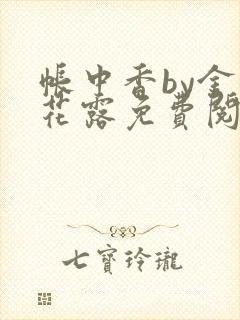 帐中香by金
花露免費閱
七寶玲瓏